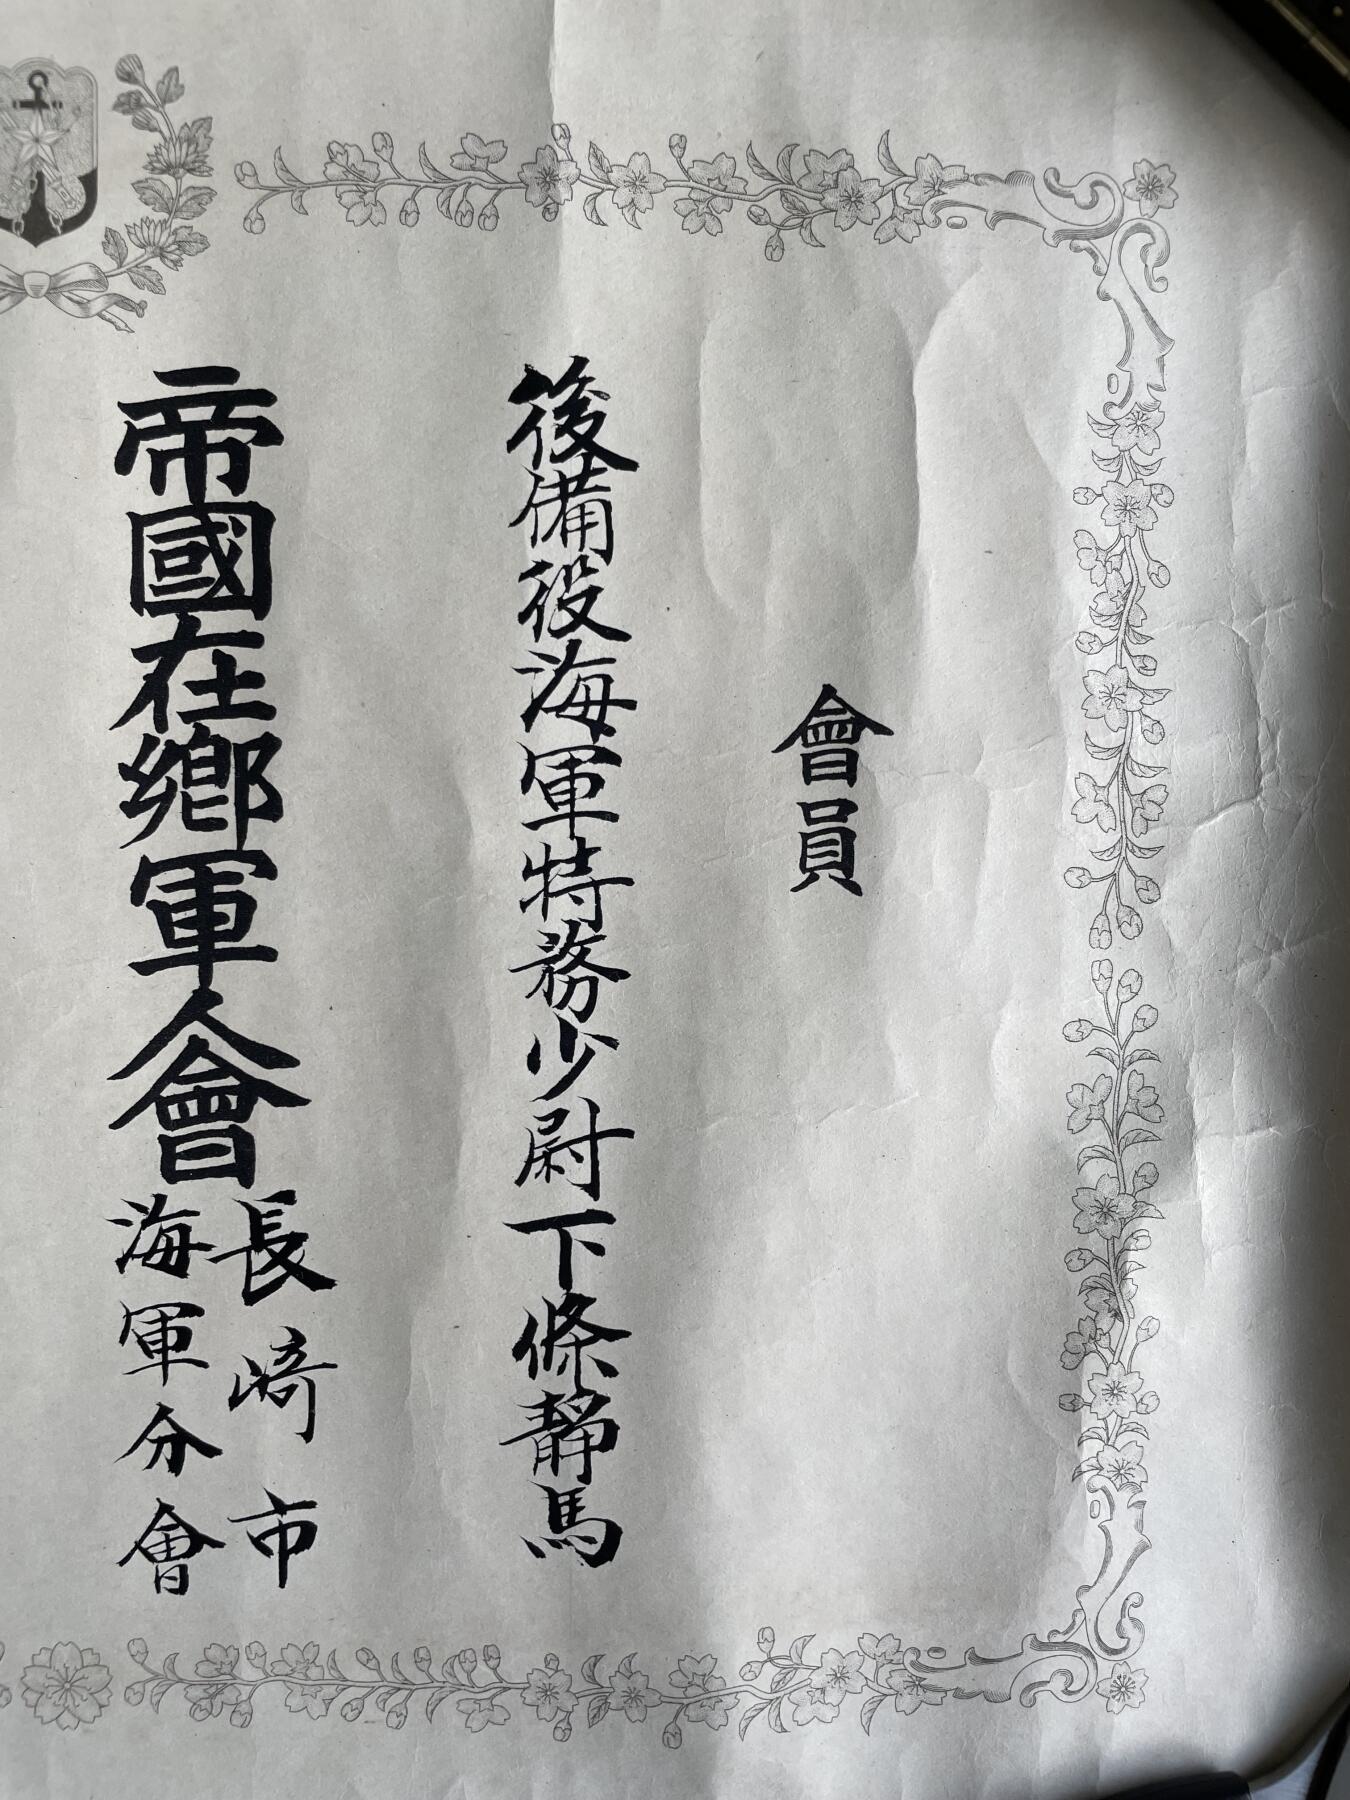 會員
後備役海軍特務少尉下條靜馬
帝國在鄉軍會
長崎市
海軍分會